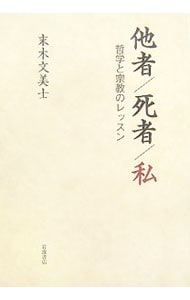 他者／死者／私
哲学と宗教のレッスン
末木文美士
岩波書店